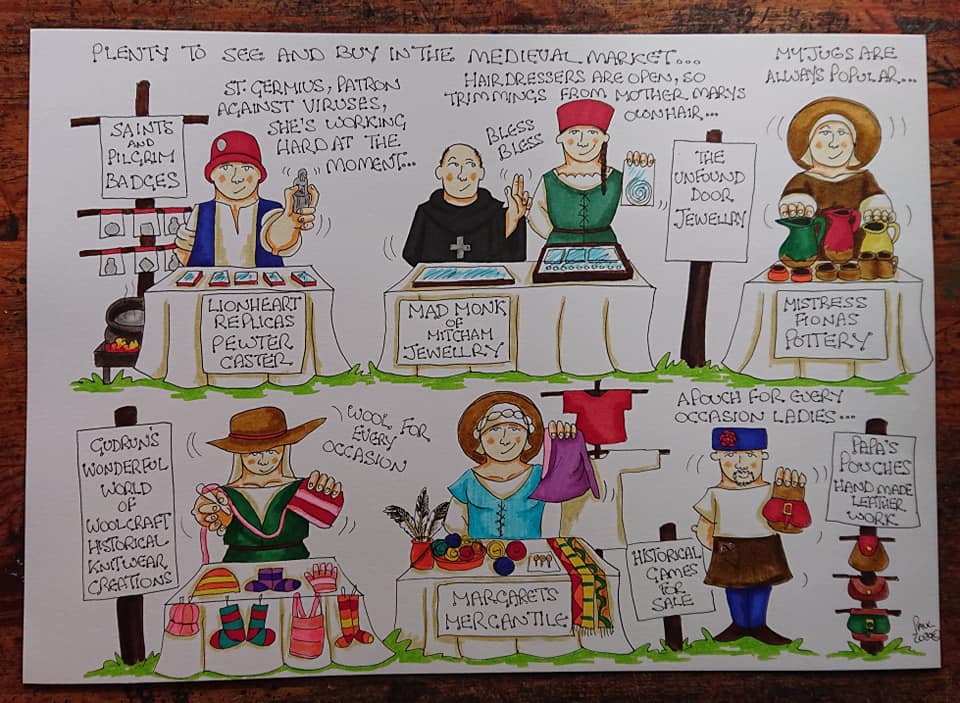 PLENTY TO SEE AND BUY IN THE MEDIEVAL MARKET...
SAINTS
AND
PILGRIM
BADGES
ST. GERMIUS, PATRON
AGAINST VIRUSES,
SHE'S WORKING
HARD AT THE
MOMENT...
LIONHEART
REPLICAS
PEWTER
CASTER
HAIRDRESSERS ARE OPEN, SO
TRIMMINGS FROM MOTHER MARYS
OWN HAIR...
BLESS
BLESS
MAD MONK
OF
MITCHAM
JEWELLRY
THE
UNFOUND
DOOR
JEWELLRY
MY JUGS ARE
ALWAYS POPULAR...
MISTRESS
FIONAS
POTTERY
GUDRUN'S
WONDERFUL
WORLD
OF
WOOLCRAFT
HISTORICAL
KNITWEAR
CREATIONS
WOOL, FOR
EVERY
OCCASION
MARGARETS
MERCANTILE
HISTORICAL
GAMES
FOR
SALE
A POUCH FOR EVERY
OCCASION LADIES...
PAPA'S
POUCHES
HAND MADE
LEATHER
WORK